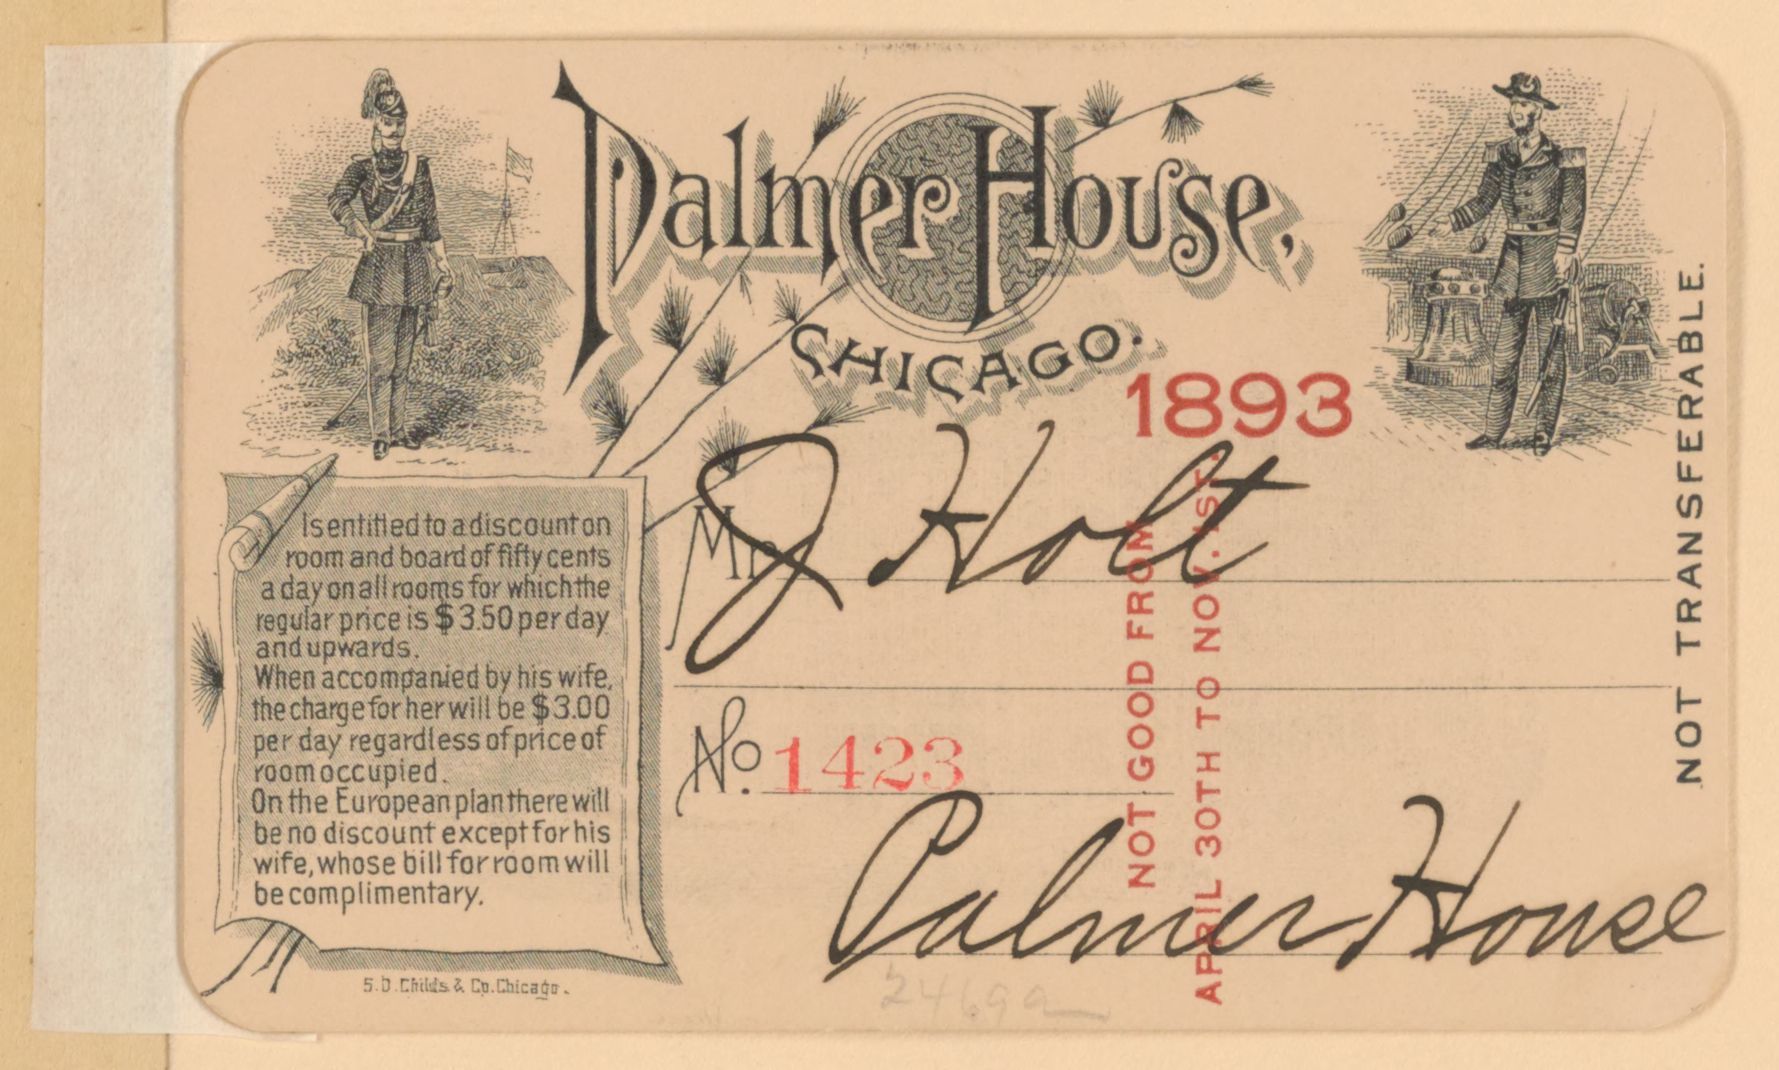 Palmer House,
CHICAGO.
1893
Mr. J Holt
No. 1423
Palmer House
Is entitled to a discount on
room and board of fifty cents
a day on all rooms for which the
regular price is $3.50 per day
and upwards.
When accompanied by his wife,
the charge for her will be $3.00
per day regardless of price of
room occupied.
On the European plan there will
be no discount except for his
wife, whose bill for room will
be complimentary.
S.D. Childs & Co. Chicago.
NOT GOOD FROM
APRIL 30TH TO NOV. 1ST.
NOT TRANSFERABLE.